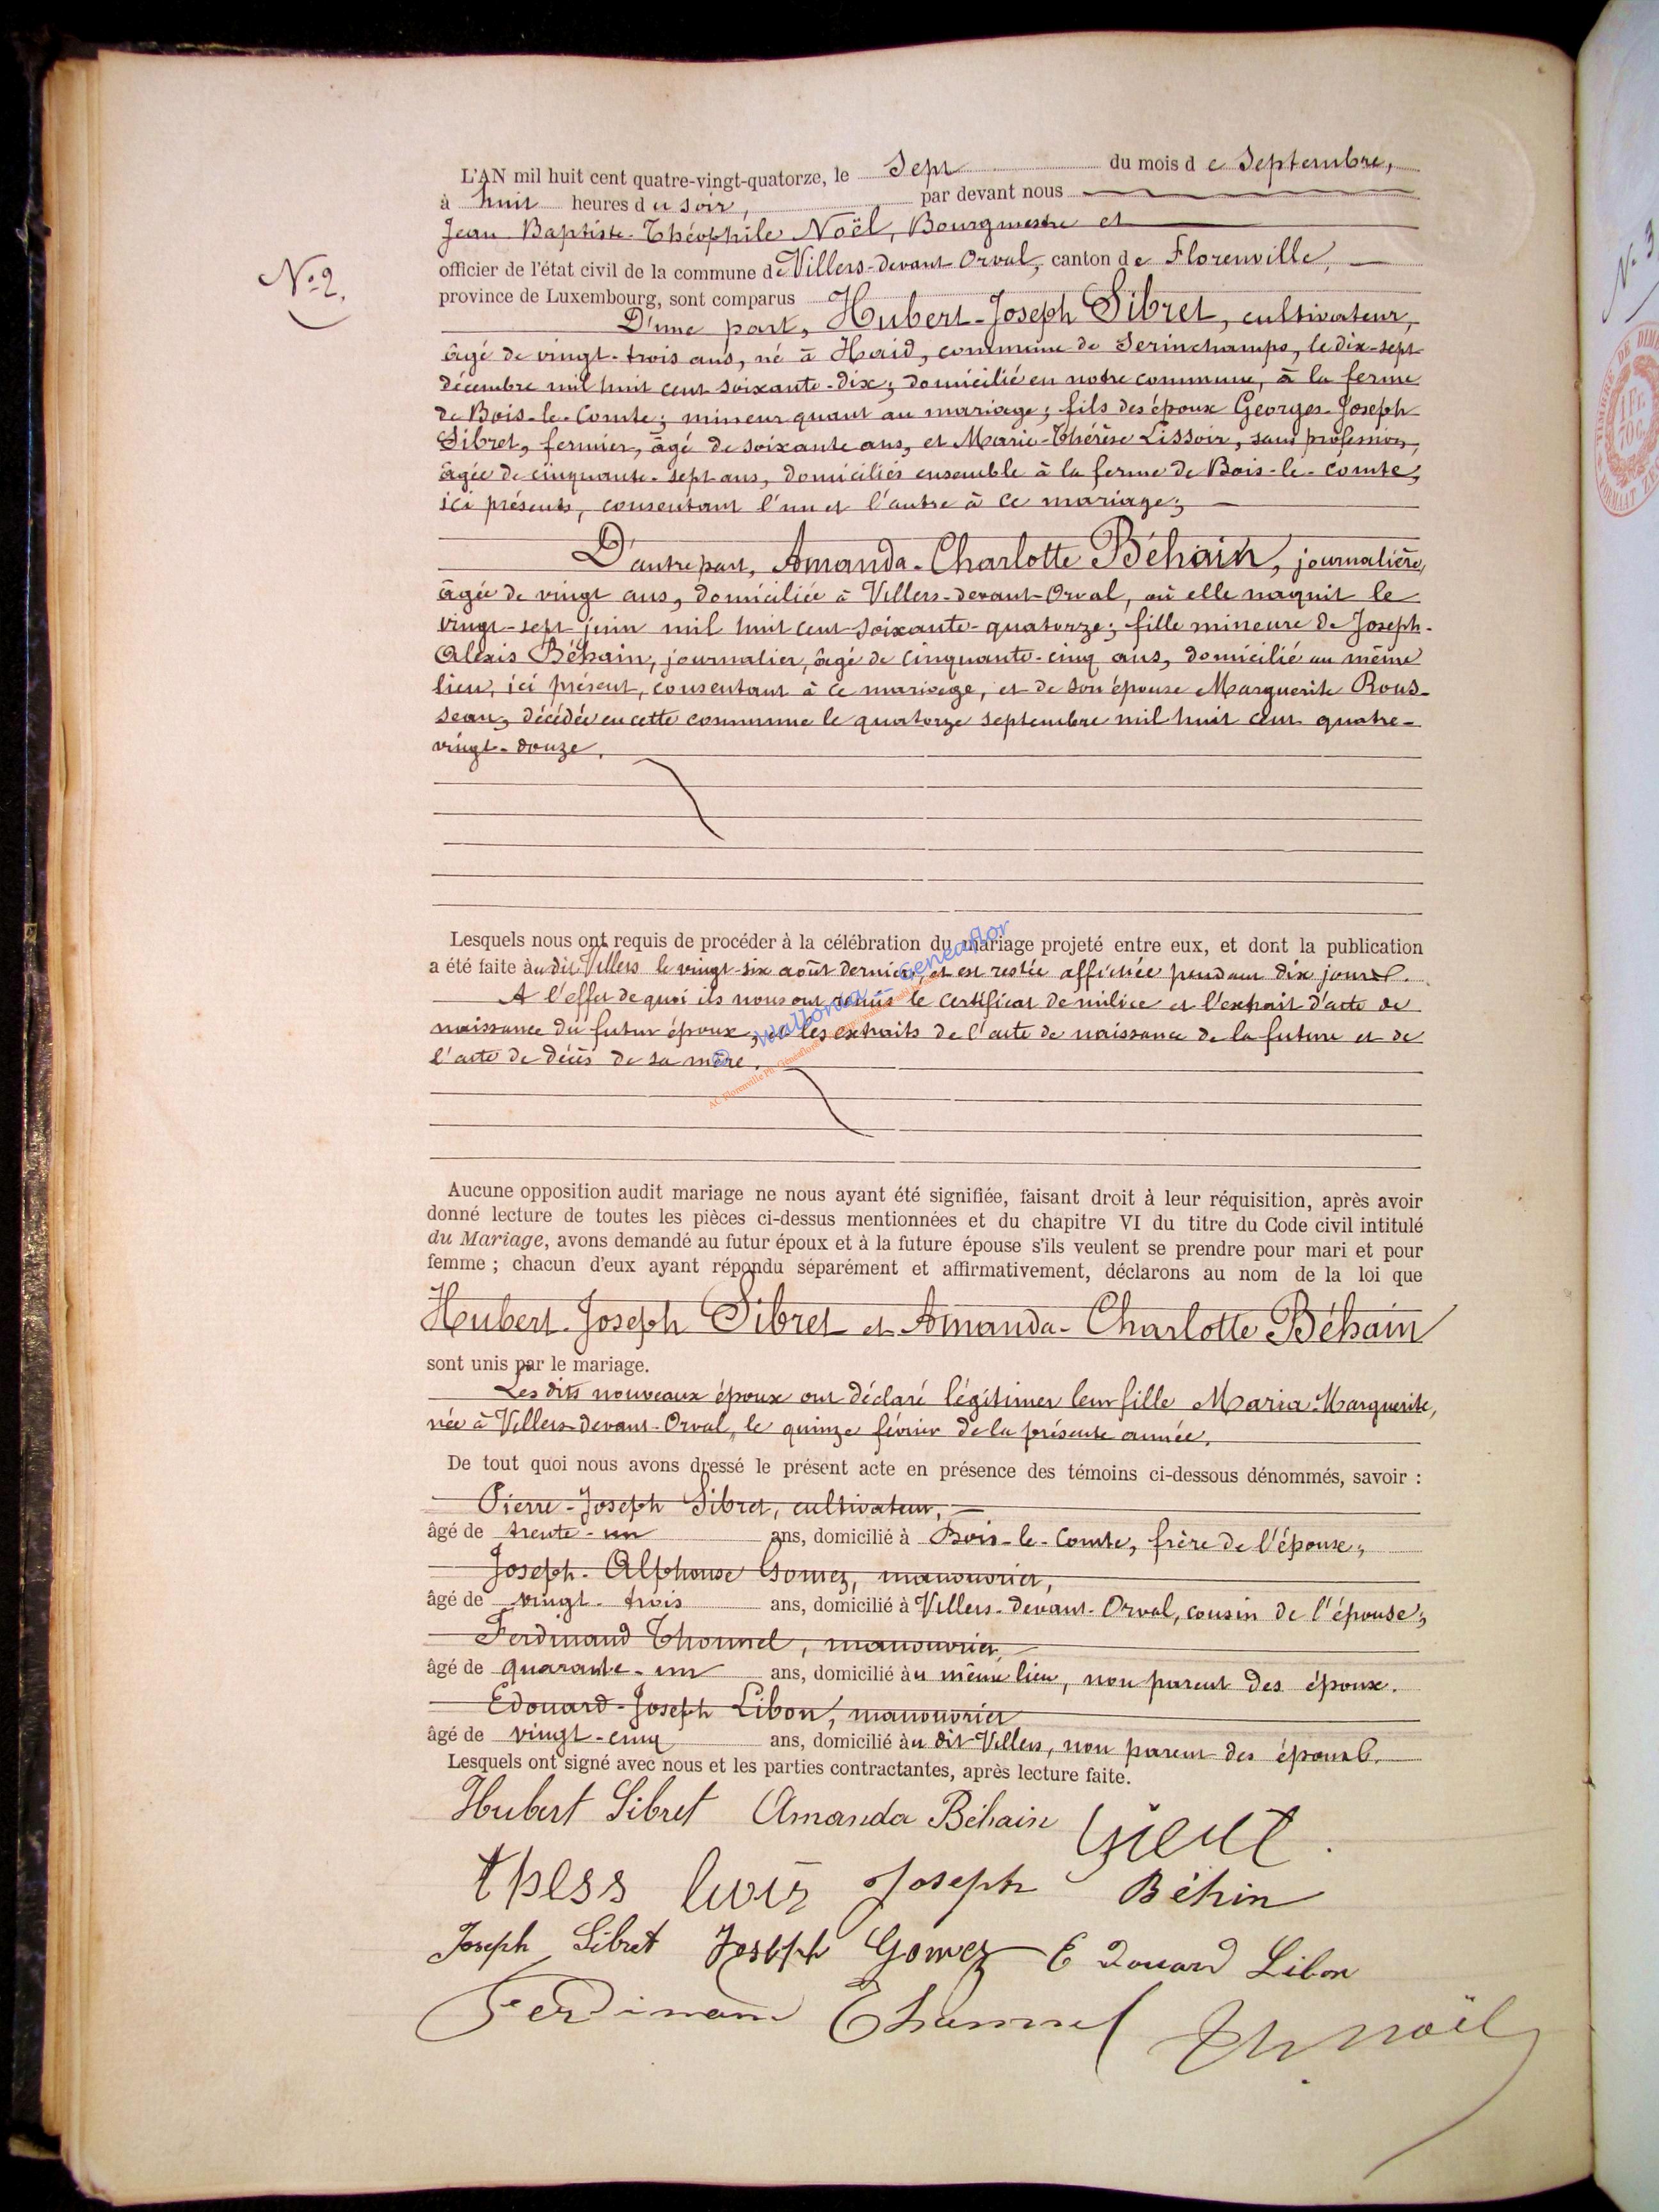 L'AN mil huit cent quatre-vingt-quatorze, le Sept du mois de Septembre,
à huit heures du soir, par devant nous
Jean-Baptiste-Théophile Noël, Bourgmestre et
officier de l'état civil de la commune de Villers-devant-Orval, canton de Florenville,
N° 2.
province de Luxembourg, sont comparus
D'une part, Hubert-Joseph Sibret, cultivateur,
âgé de vingt-trois ans, né à Haid, commune de Serinchamps, le dix-sept
décembre mil huit cent soixante-dix; domicilié en notre commune, à la ferme
de Bois-le-Comte; mineur quant au mariage; fils des époux Georges-Joseph
Sibret, fermier, âgé de soixante ans, et Marie-Thérèse Lissoir, sans profession,
âgée de cinquante-sept ans, domiciliés ensemble à la ferme de Bois-le-Comte,
ici présents, consentant l'un et l'autre à ce mariage;
D'autre part, Amanda-Charlotte Béhain, journalière,
âgée de vingt ans, domiciliée à Villers-devant-Orval, où elle naquit le
vingt-sept juin mil huit cent soixante-quatorze; fille mineure de Joseph-
Alexis Béhain, journalier, âgé de cinquante-cinq ans, domicilié au même
lieu, ici présent, consentant à ce mariage, et de son épouse Marguerite Rous-
seau, décédée en cette commune le quatorze septembre mil huit cent quatre-
vingt-douze.
Lesquels nous ont requis de procéder à la célébration du mariage projeté entre eux, et dont la publication
a été faite audit Villers le vingt-six août dernier, et est restée affichée pendant dix jours.
A l'effet de quoi ils nous ont remis le certificat de milice et l'extrait d'acte de
naissance du futur époux, et les extraits de l'acte de naissance de la future et de
l'acte de décès de sa mère.
wallonia - Geneaflor
AC Florenville
Aucune opposition audit mariage ne nous ayant été signifiée, faisant droit à leur réquisition, après avoir
donné lecture de toutes les pièces ci-dessus mentionnées et du chapitre VI du titre du Code civil intitulé
du Mariage, avons demandé au futur époux et à la future épouse s'ils veulent se prendre pour mari et pour
femme ; chacun d'eux ayant répondu séparément et affirmativement, déclarons au nom de la loi que
Hubert-Joseph Sibret et Amanda-Charlotte Béhain
sont unis par le mariage.
Les dits nouveaux époux ont déclaré légitimer leur fille Maria-Marguerite,
née à Villers-devant-Orval, le quinze février de la présente année.
De tout quoi nous avons dressé le présent acte en présence des témoins ci-dessous dénommés, savoir :
Pierre-Joseph Sibret, cultivateur,
âgé de trente-un ans, domicilié à Bois-le-Comte, frère de l'époux,
Joseph-Alphonse Gomez, manouvrier,
âgé de vingt-trois ans, domicilié à Villers-devant-Orval, cousin de l'épouse;
Ferdinand Thonnel, manouvrier,
âgé de quarante-un ans, domicilié au même lieu, non parent des époux.
Edouard-Joseph Libon, manouvrier
âgé de vingt-cinq ans, domicilié au dit Villers, non parent des époux.
Lesquels ont signé avec nous et les parties contractantes, après lecture faite.
Hubert Sibret Amanda Béhain
Joseph Béhin
Joseph Sibret Joseph Gomez Edouard Libon
Ferdinand Thonnel Th Noël
N° 3